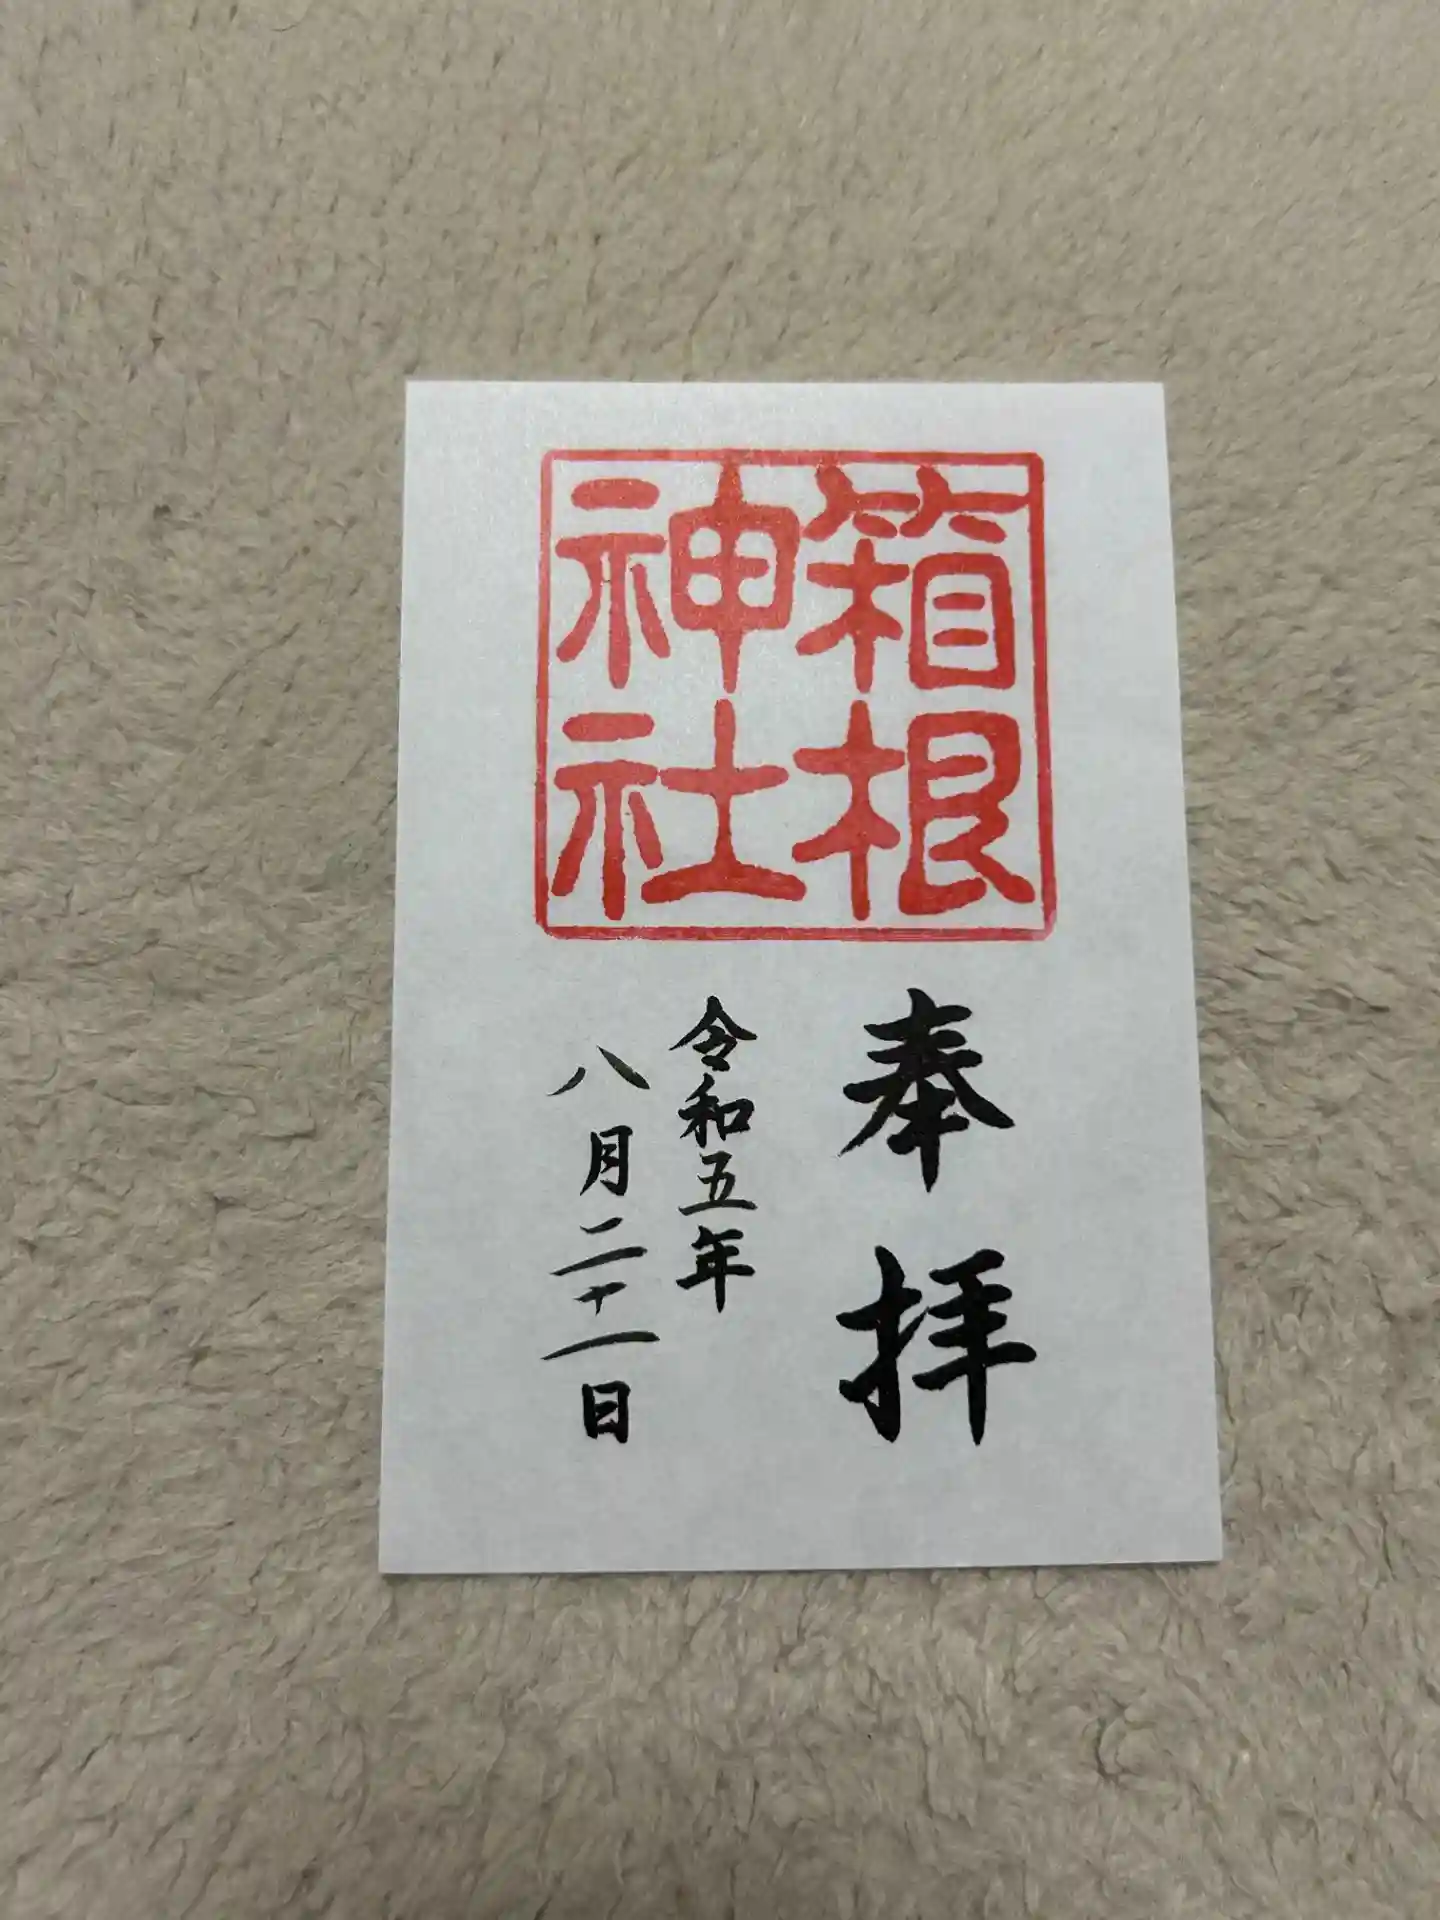 箱根
神社
奉拝
令和五年
八月二十一日